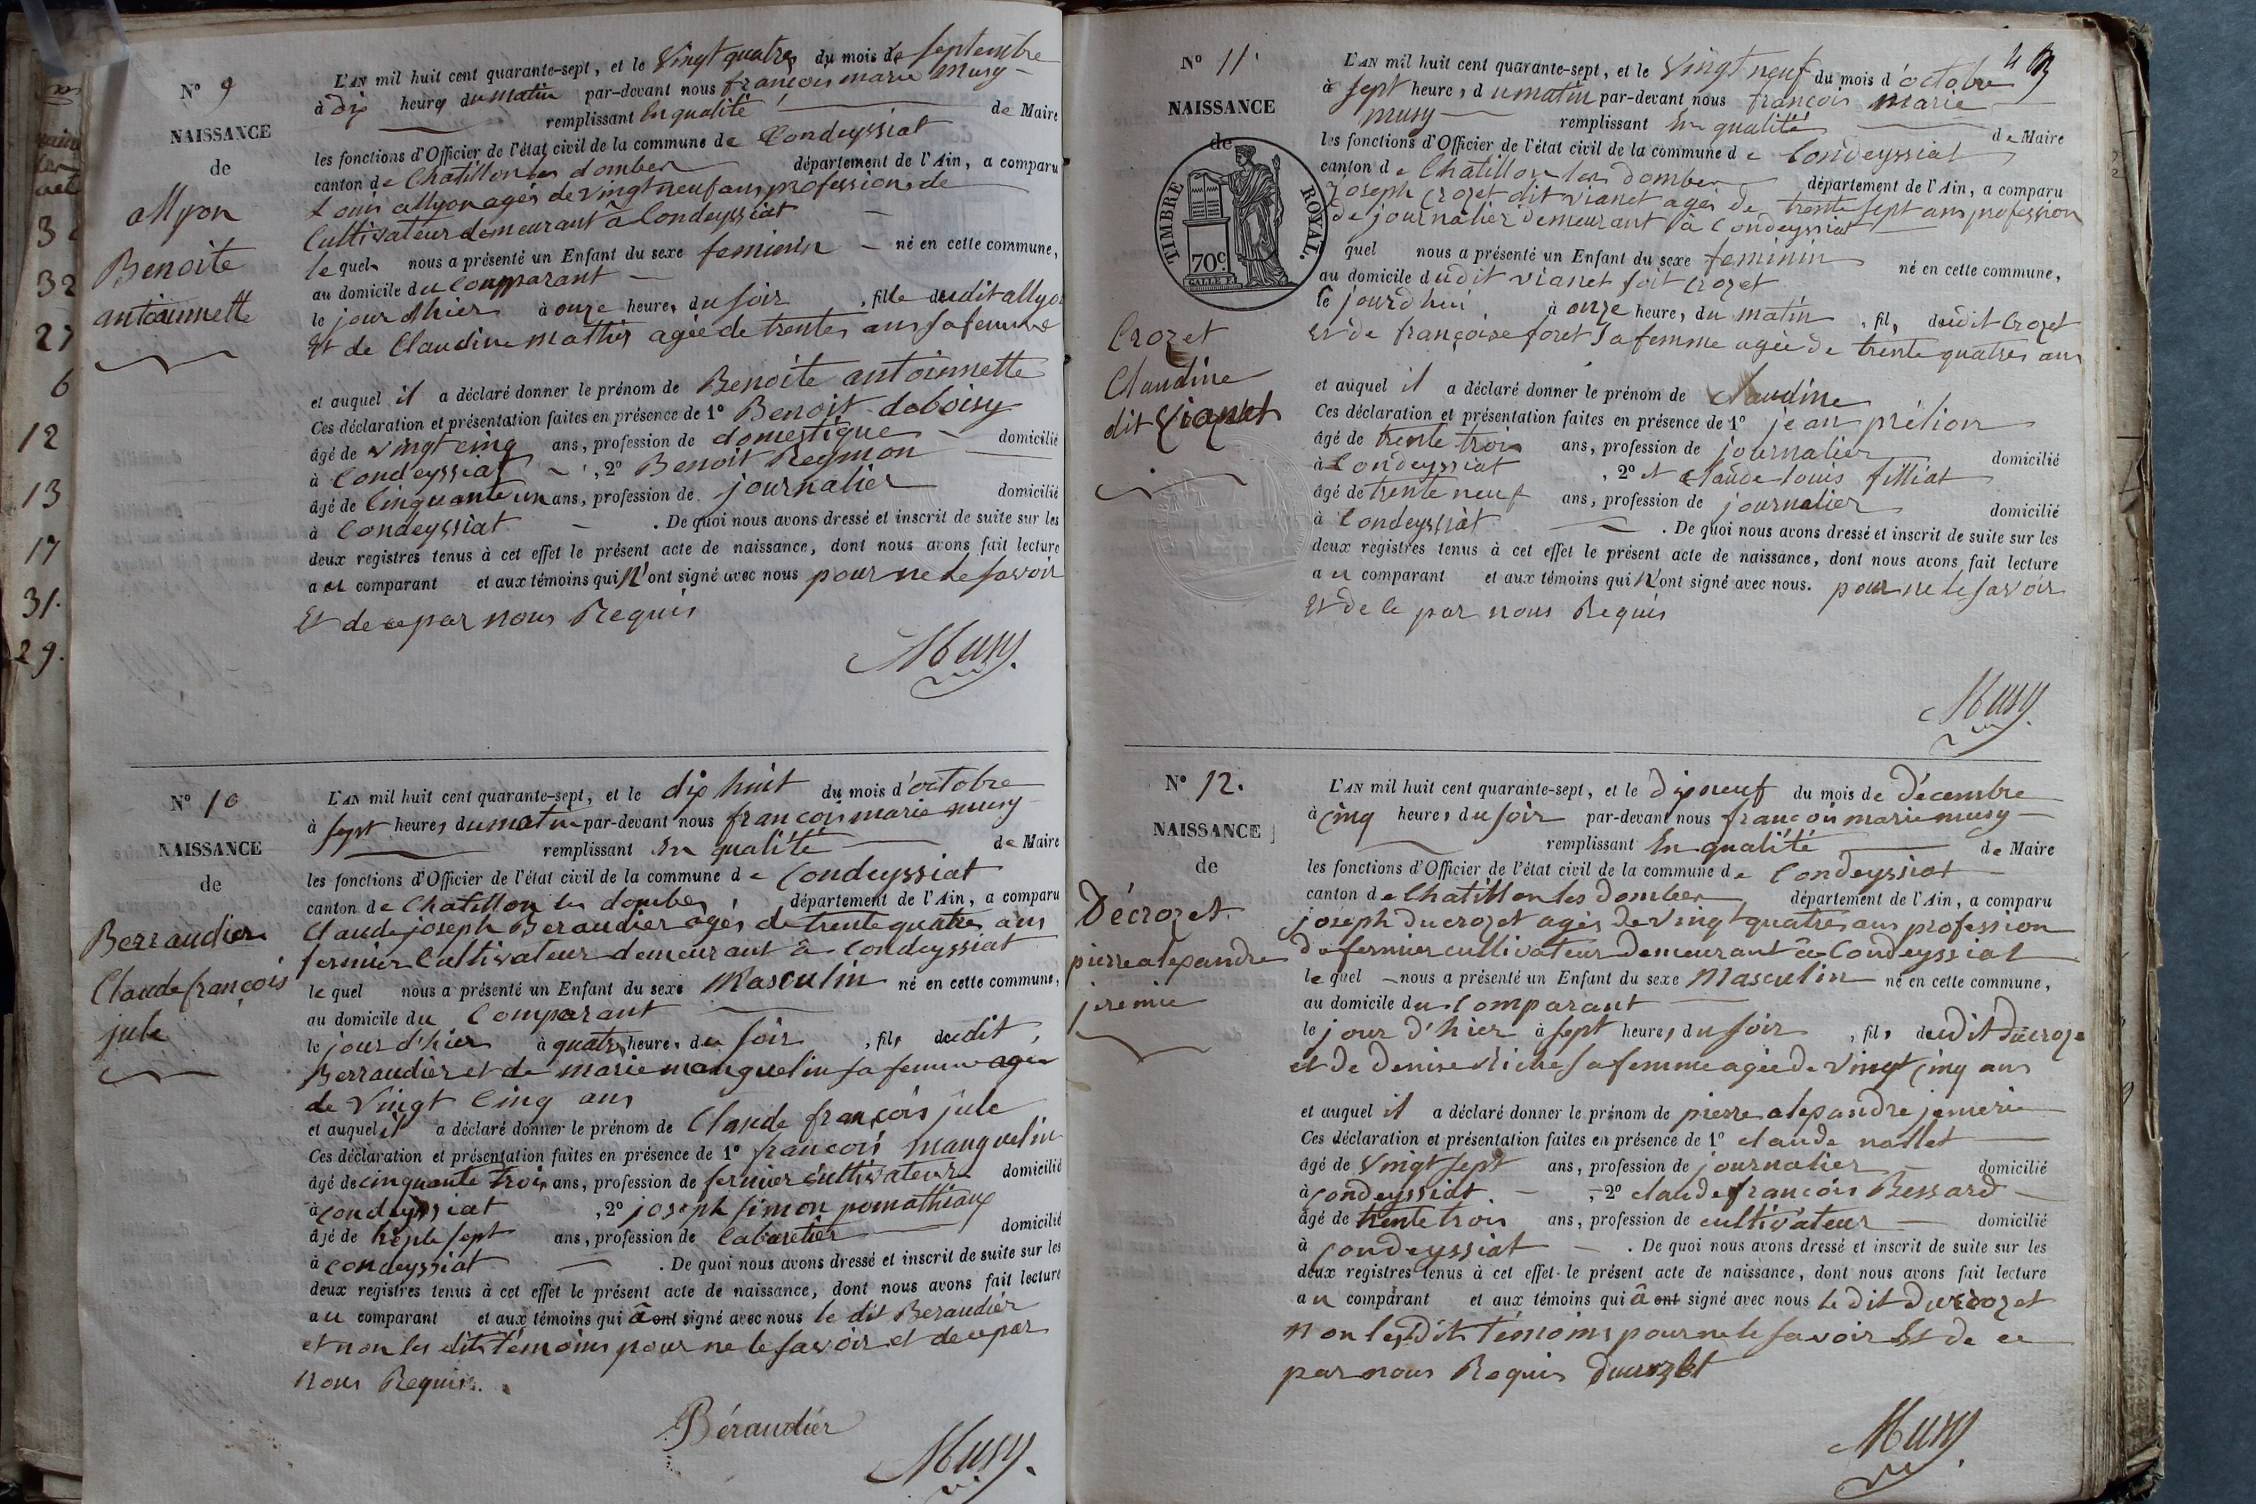 N° 9
NAISSANCE
de
allyon
Benoite
antoinnette
L'AN mil huit cent quarante-sept, et le Vingt quatre du mois de septembre
à dix heures du matin par-devant nous françois marie Musy
remplissant En qualité de Maire
les fonctions d'Officier de l'état civil de la commune de Condeyssiat
canton de Chatillon les dombes département de l'Ain, a comparu
Louis allyon agés de vingt neuf ans profession de
Cultivateur demeurant à Condeyssiat
lequel nous a présenté un Enfant du sexe feminin né en cette commune,
au domicile du Comparant
le jour d'hier à onze heures du soir, fille dudit allyon
Et de Claudine mathis agée de trentes ans sa femme
et auquel il a déclaré donner le prénom de Benoite antoinnette
Ces déclaration et présentation faites en présence de 1° Benoit deboisy
âgé de vingt cinq ans, profession de domestique domicilié
à Condeyssiat, 2° Benoit Reymon
âgé de Cinquante un ans, profession de journalier domicilié
à Condeyssiat. De quoi nous avons dressé et inscrit de suite sur les
deux registres tenus à cet effet le présent acte de naissance, dont nous avons fait lecture
au comparant et aux témoins qui N'ont signé avec nous pour ne le savoir
Et de ce par nous Requis
Musy
N° 10
NAISSANCE
de
Berraudier
Claude françois
jule
L'AN mil huit cent quarante-sept, et le dix huit du mois d'octobre
à sept heures du matin par-devant nous françois marie musy
remplissant En qualité de Maire
les fonctions d'Officier de l'état civil de la commune de Condeyssiat
canton de Chatillon les dombes département de l'Ain, a comparu
Claude joseph Beraudier agés de trente quatre ans
fermier Cultivateur demeurant à Condeyssiat
lequel nous a présenté un Enfant du sexe Masculin né en cette commune,
au domicile du Comparant
le jour d'hier à quatre heures du soir, fils dudit
Berraudier et de marie manguelin sa femme agée
de Vingt Cinq ans
et auquel il a déclaré donner le prénom de Claude françois jule
Ces déclaration et présentation faites en présence de 1° françois manguelin
âgé de cinquante trois ans, profession de fermier Cultivateur domicilié
à condeyssiat, 2° joseph simon pomathiaux
âgé de trente sept ans, profession de Cabaretier domicilié
à condeyssiat. De quoi nous avons dressé et inscrit de suite sur les
deux registres tenus à cet effet le présent acte de naissance, dont nous avons fait lecture
au comparant et aux témoins qui à ont signé avec nous le dit Beraudier
et non les dits témoins pour ne le savoir et de ce par
nous Requis.
Béraudier
Musy
N° 11
NAISSANCE
de
TIMBRE ROYAL.
70c.
Crozet
Claudine
dit Vianet
L'AN mil huit cent quarante-sept, et le Vingt neuf du mois d'octobre
à sept heures du matin par-devant nous françois marie
musy remplissant En qualité de Maire
les fonctions d'Officier de l'état civil de la commune de Condeyssiat
canton de Chatillon les Dombes département de l'Ain, a comparu
joseph Crozet dit vianet agés de trente sept ans profession
de journalier demeurant à Condeyssiat
quel nous a présenté un Enfant du sexe feminin né en cette commune,
au domicile dudit vianet soit Crozet
le jourd'hui à onze heures du matin, fils dudit Crozet
Et de françoise foret sa femme agée de trente quatres ans
et auquel il a déclaré donner le prénom de Claudine
Ces déclaration et présentation faites en présence de 1° jean prélion
âgé de trente trois ans, profession de journalier domicilié
à Condeyssiat, 2° et Claude louis filliat
âgé de trente neuf ans, profession de journalier domicilié
à Condeyssiat. De quoi nous avons dressé et inscrit de suite sur les
deux registres tenus à cet effet le présent acte de naissance, dont nous avons fait lecture
au comparant et aux témoins qui N'ont signé avec nous. pour ne le savoir
Et de ce par nous Requis
Musy
N° 12.
NAISSANCE
de
Décrozet
pierre alexandre
jeremie
L'AN mil huit cent quarante-sept, et le Dix neuf du mois de Décembre
à cinq heures du soir par-devant nous françois marie musy
remplissant En qualité de Maire
les fonctions d'Officier de l'état civil de la commune de Condeyssiat
canton de Chatillon les Dombes département de l'Ain, a comparu
joseph ducrozet agés de Vingt quatres ans profession
de fermier cultivateur Demeurant à Condeyssiat
lequel nous a présenté un Enfant du sexe Masculin né en cette commune,
au domicile du Comparant
le jour d'hier à sept heures du soir, fils dudit Ducroze
et de Denise Riche sa femme agée de Vingt cinq ans
et auquel il a déclaré donner le prénom de pierre alexandre jemerie
Ces déclaration et présentation faites en présence de 1° claude nallet
âgé de Vingt sept ans, profession de journalier domicilié
à condeyssiat, 2° claude françois Bessard
âgé de trente trois ans, profession de cultivateur domicilié
à condeyssiat. De quoi nous avons dressé et inscrit de suite sur les
deux registres tenus à cet effet le présent acte de naissance, dont nous avons fait lecture
au comparant et aux témoins qui à ont signé avec nous le dit Ducrozet
Non les Dits témoins pour ne le savoir Et de ce
par nous Requis Ducrozet
Musy